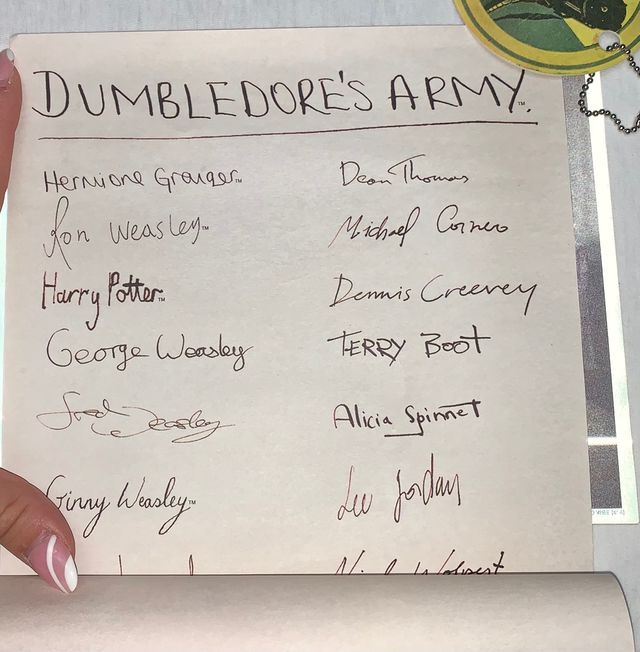 DUMBLEDORE'S ARMY.™
Hermione Granger™
Ron Weasley™
Harry Potter™
George Weasley
Fred Weasley
Ginny Weasley™
Dean Thomas
Michael Corner
Dennis Creevey
TERRY BOOT
Alicia Spinnet
Lee Jordan